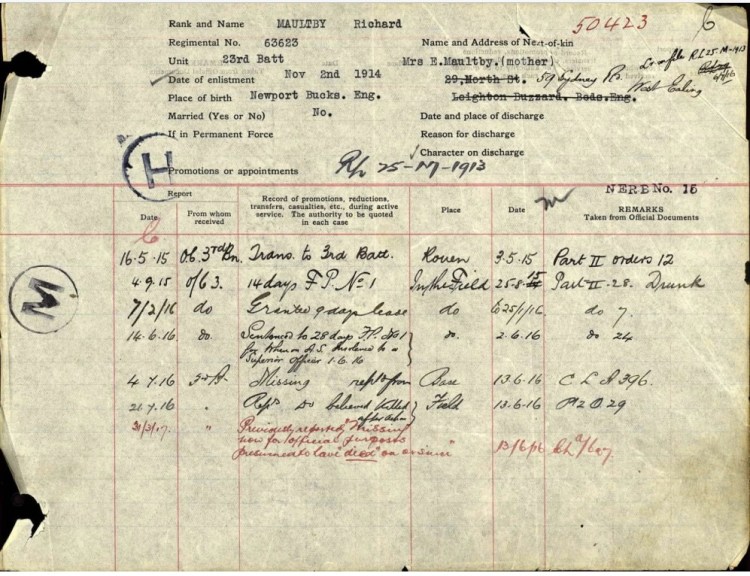 50423 6
Rank and Name MAULTBY Richard
Regimental No. 63623 Name and Address of Next-of-kin
Unit 23rd Batt Mrs E.Maultby.(mother)
Date of enlistment Nov 2nd 1914 29,North St. 59 Sydney Rd.
Place of birth Newport Bucks. Eng. Leighton Buzzard. Beds.Eng. West Ealing
Married (Yes or No) No. Date and place of discharge
If in Permanent Force Reason for discharge
Character on discharge
H
Promotions or appointments 25-M-1913
NERB No. 15
Report
Date From whom received Record of promotions, reductions, transfers, casualties, etc., during active service. The authority to be quoted in each case Place Date REMARKS Taken from Official Documents
16.5.15 O.C. 3rd Bn. Trans. to 3rd Batt. Rouen 3.5.15 Part II orders 12
4.9.15 14 days F.P. No 1 In the Field Part II - 28. Drunk
7/2/16 do Granted 9 days leave do do 7.
14.6.16 do. Sentenced to 28 days F.P. No 1
for When on A.S. Insolence to a do. 2.6.16 do 24
Superior officer 1.6.16
4.7.16 Missing Base 13.6.16 C L A 396.
21.7.16 " believed killed Field 13.6.16
31/3/17. Previously reported "Missing"
now for official purposes
presumed to have "died" on or since " 13/6/16
M